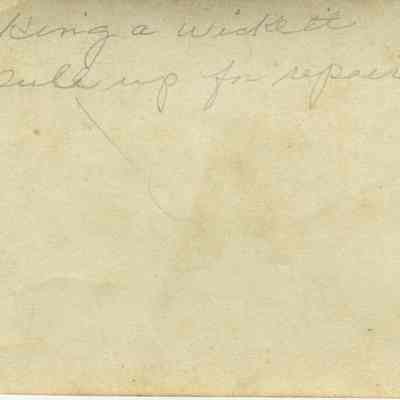 king a wickett
pull up for repair